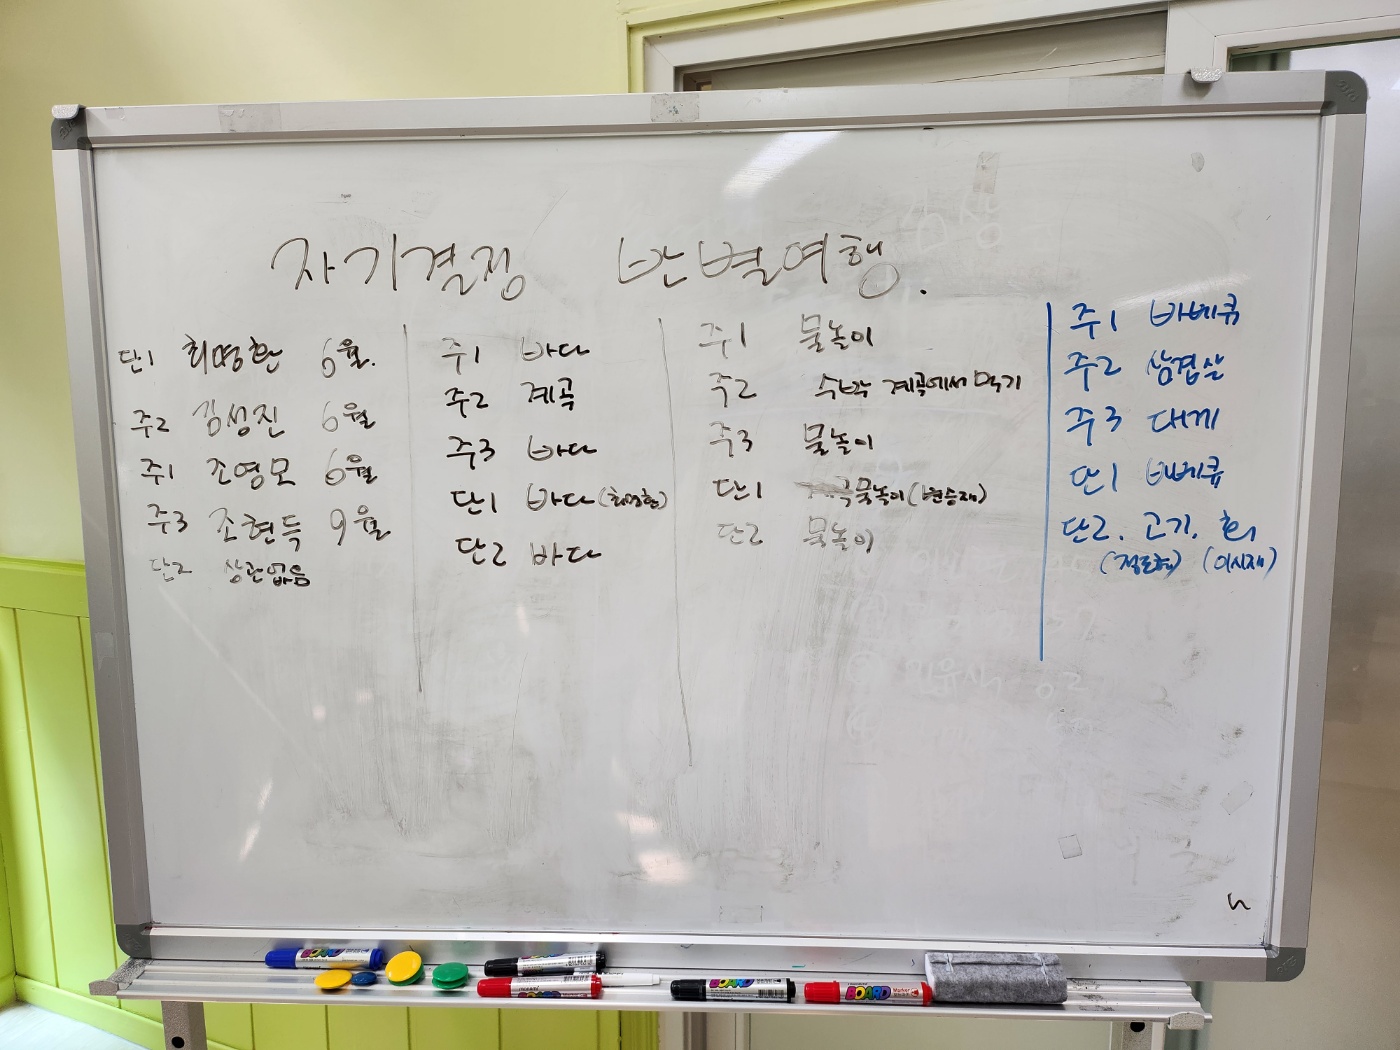 자기결정 반별여행.
단1 최명환 6월.
주2 김성진 6월
주1 조영모 6월
주3 조현득 9월
단2 상관없음
주1 바다
주2 계곡
주3 바다
단1 바다 (최명환)
단2 바다
주1 물놀이
주2 수박 계곡에서 먹기
주3 물놀이
단1 물놀이 (변승재)
단2 물놀이
주1 바베큐
주2 삼겹살
주3 대게
단1 바베큐
단2. 고기, 회
(이시재)
BOARD
BOARD
BOARD